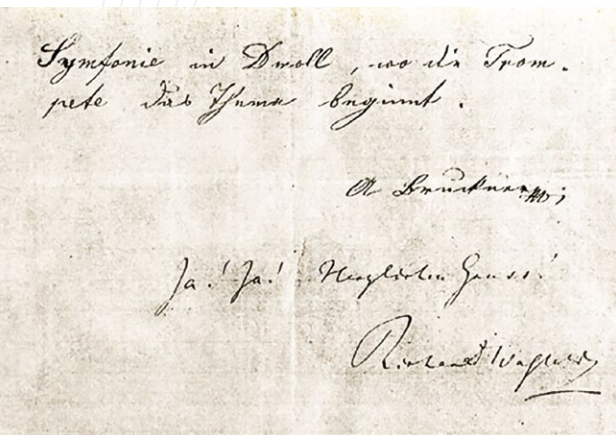 Symfonie in Dmoll, wo die Trom-
pete das Thema beginnt.
A Bruckner
Ja! Ja! Herzlichen Gruss!
Richard Wagner